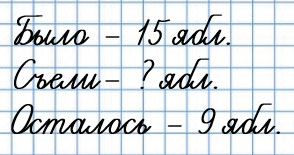 Было – 15 ябл.
Съели – ? ябл.
Осталось – 9 ябл.